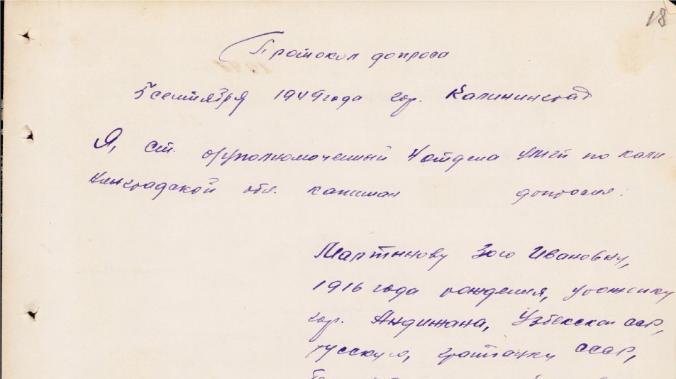 18
Протокол допроса
5 сентября 1949 года гор. Калининград
Я, ст. оруполномоченный 4 отдела УМГБ по Кали
нинградской обл. капитан допросил:
Мартынову Зою Ивановну,
1916 года рождения, уроженку
гор. Андижана, Узбекской ССР,
русскую, гражданку СССР,